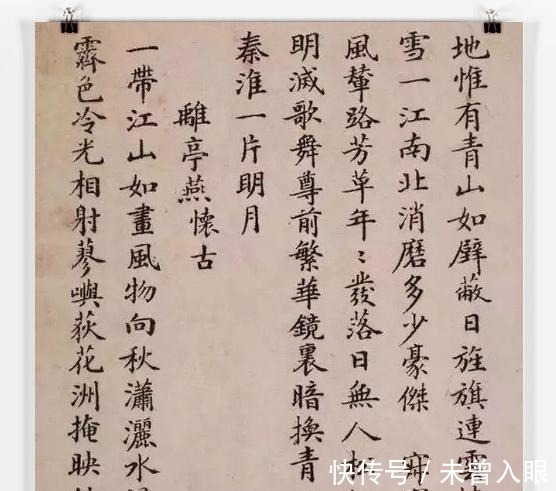 地惟有青山如壁蔽日旌旗連雲
雪一江南北消磨多少豪傑
風輦路芳草年〻發落日無人
明滅歌舞尊前繁華鏡裏暗換青
秦淮一片明月
離亭燕懷古
一帶江山如畫風物向秋瀟灑水
霽色冷光相射蓼嶼荻花洲掩映
快传号 / 未曾入眼